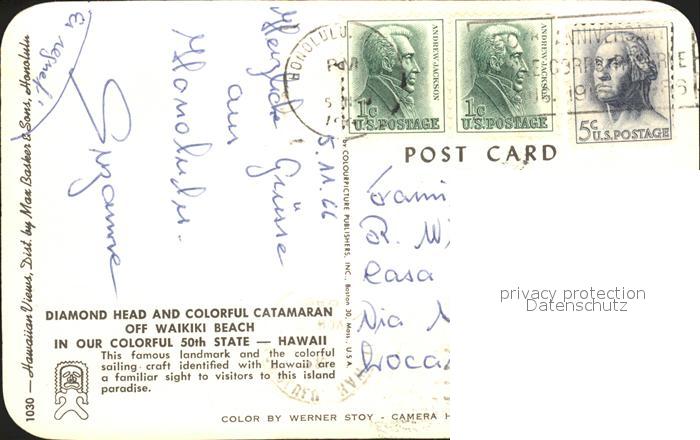 1030 — Hawaiian Views, Dist. by Max Basker & Sons, Honolulu
5.11.66
Herzliche Grüsse
aus
Honolulu.
Suzanne
HONOLULU
ANDREW JACKSON
1c
U.S. POSTAGE
ANDREW JACKSON
1c
U.S. POSTAGE
ANNIVERSARY
5c
U.S. POSTAGE
POST CARD
by COLOURPICTURE PUBLISHERS, INC., Boston 30, Mass., U.S.A.
R. Wi
Casa
Via
Locar
privacy protection
Datenschutz
DIAMOND HEAD AND COLORFUL CATAMARAN
OFF WAIKIKI BEACH
IN OUR COLORFUL 50th STATE — HAWAII
This famous landmark and the colorful
sailing craft identified with Hawaii are
a familiar sight to visitors to this island
paradise.
COLOR BY WERNER STOY - CAMERA H